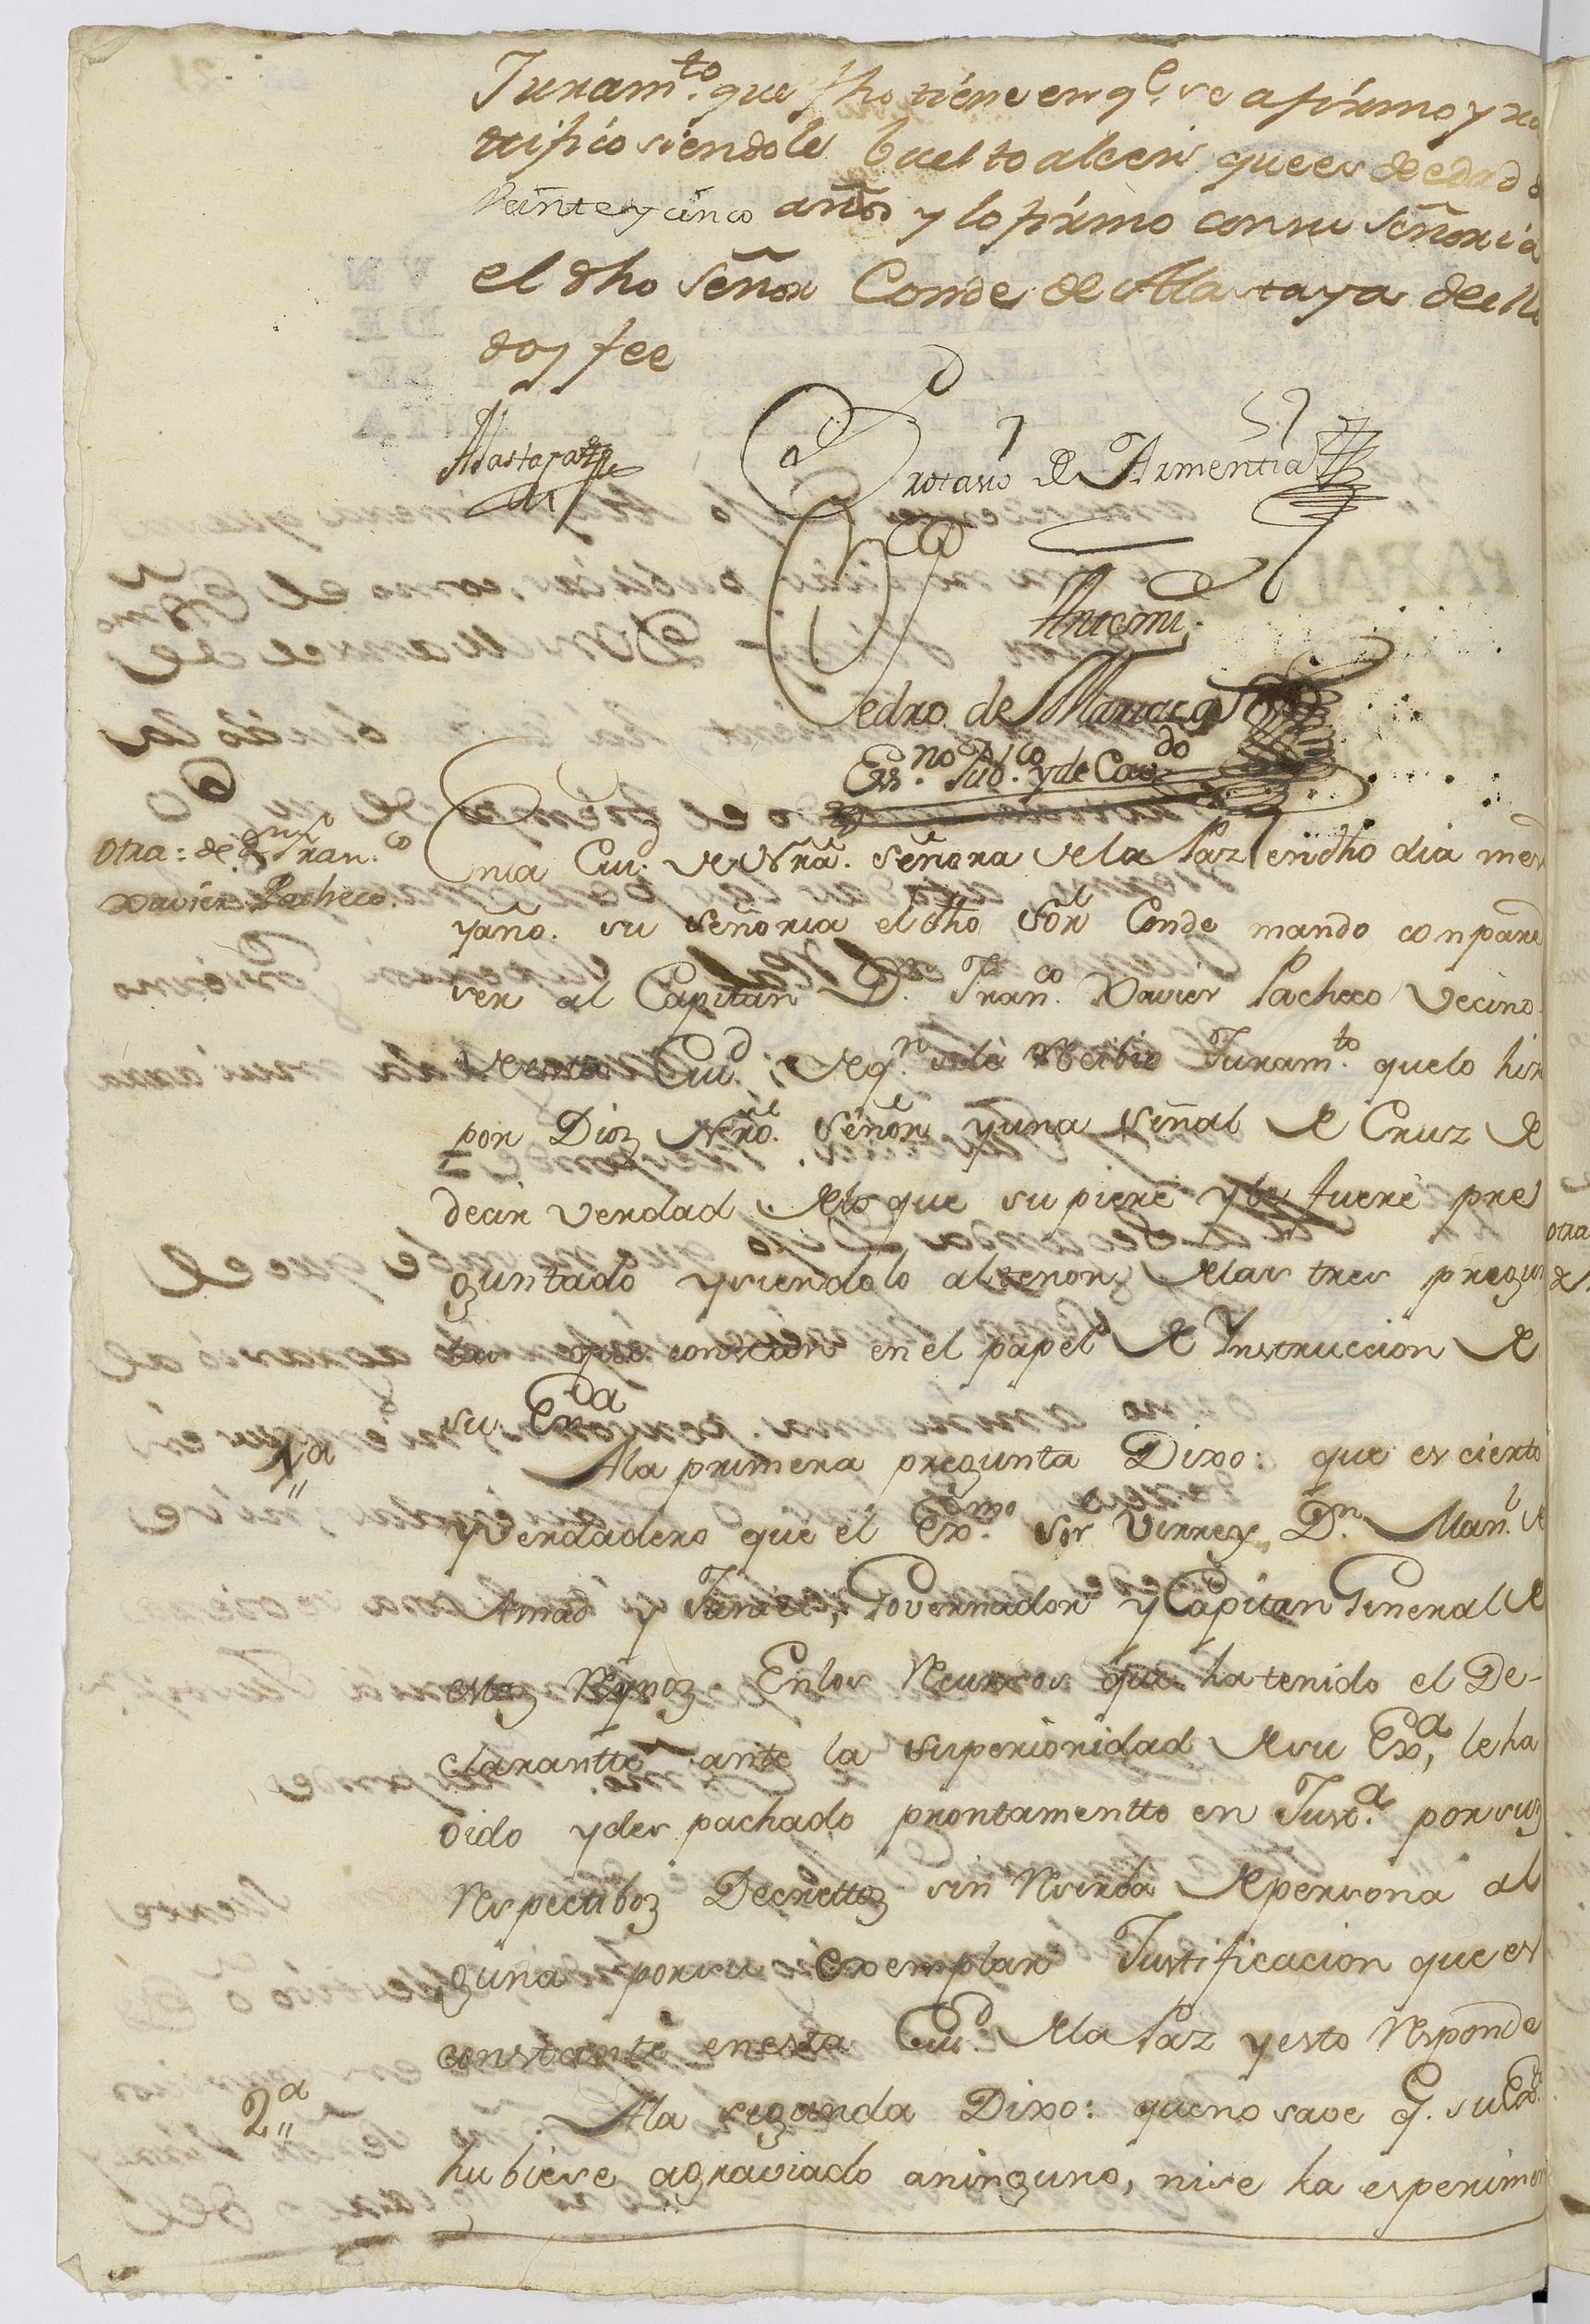 Juram.to que fho tiene en q.e se afirmo y ra
tifico siendole buelto a leer que es de edad d
Veinte y cinco años y lo firmo con su Señoria
el dho Señor Conde de Alastaya de ello
doy fee
Alastaya
Protasio de Armentia
Antemi
Pedro de Mariaca
Ess.no Pub.co y de Cav.do
Otra: de D.n Fran.co
Xavier Pacheco.
En la Ciu.d de Nrâ. Señora de la Paz en dho dia mes
y año. su Señoria el dho Sor Conde mando conpare
ser al Capitan D.n Fran.co Xavier Pacheco Vecino
de esta Ciu.d; de q.n se le Recibio Juram.to que lo hizo
por Dioz Nrô. Señor y una Señal de Cruz de
decir verdad de lo que supiere y le fuere pre
guntado y siendolo al tenor de las tres pregun
tas que constan en el papel de Ynstruccion de
su Ex.cia
1.a
A la primera pregunta Dixo: que es cierto
y Verdadero que el Ex.mo Sor Virrey D.n Man.l de
Amat y Junient, Governador y Capitan General de
estoz Reynoz. En los Recursos que ha tenido el De-
clarantte ante la Superioridad de su Ex.a, le ha
oido y des pachado prontamentte en Just.a por suz
Respectiboz Decrettoz sin Reserba de persona al
guna por su exemplar Justificacion que es
constante en esta Ciu.d de la Paz y esto Responde
2.a
A la segunda Dixo: que no save q. su Ex.a
hubiese agraviado a ninguno, ni se ha esperimen
otra